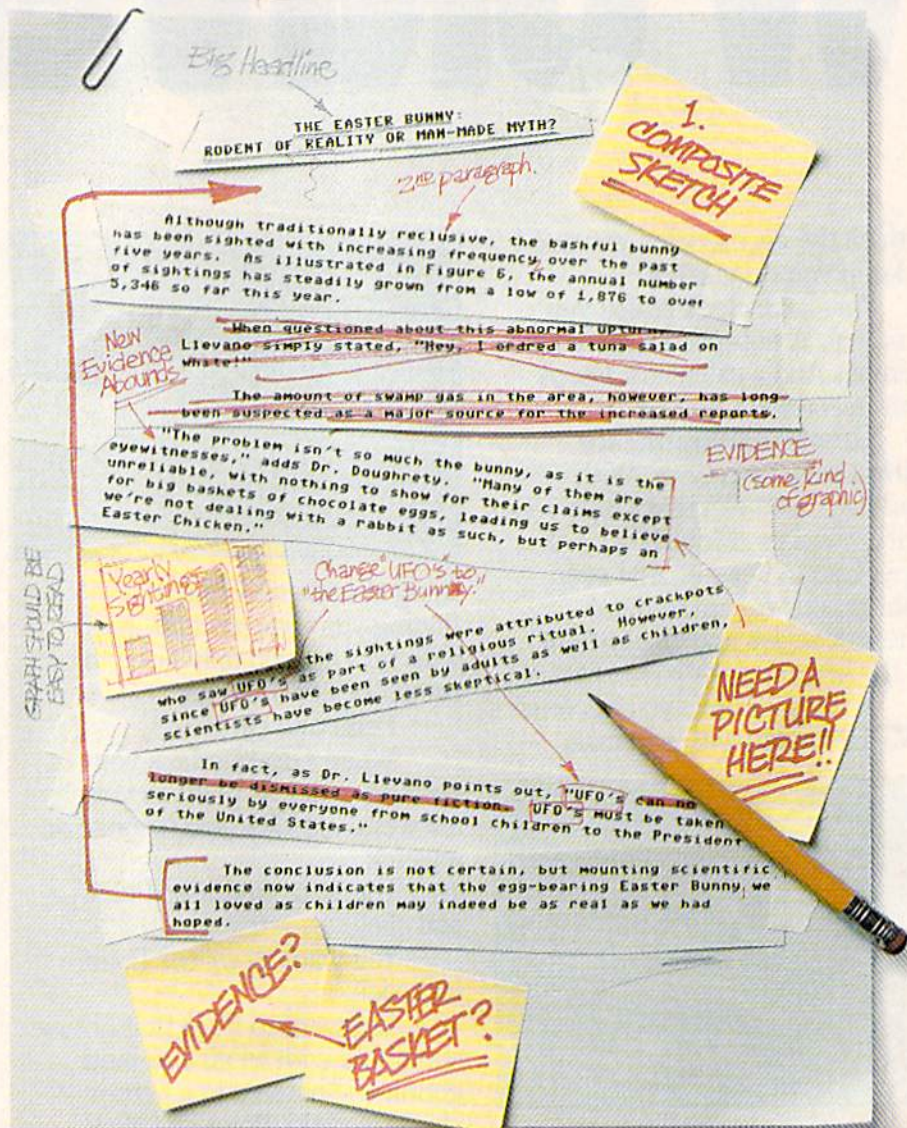 Big Headline
THE EASTER BUNNY:
RODENT OF REALITY OR MAN-MADE MYTH?
1.
COMPOSITE
SKETCH
2nd paragraph.
Although traditionally reclusive, the bashful bunny
has been sighted with increasing frequency over the past
five years. As illustrated in Figure 6, the annual number
of sightings has steadily grown from a low of 1,876 to over
5,346 so far this year.
When questioned about this abnormal upturn,
Llevano simply stated, "Hey, I ordred a tuna salad on
whate!"
New
Evidence
Abounds
The amount of swamp gas in the area, however, has long
been suspected as a major source for the increased reports.
"The problem isn't so much the bunny, as it is the
eyewitnesses," adds Dr. Doughrety. "Many of them are
unreliable, with nothing to show for their claims except
for big baskets of chocolate eggs, leading us to believe
we're not dealing with a rabbit as such, but perhaps an
Easter Chicken."
EVIDENCE
(some kind
of graphic)
GRAPH SHOULD BE
EASY TO READ
Yearly
Sightings
Change "UFO's" to
"the Easter Bunny."
the sightings were attributed to crackpots
who saw UFO's as part of a religious ritual. However,
since UFO's have been seen by adults as well as children,
scientists have become less skeptical.
NEED A
PICTURE
HERE!!
In fact, as Dr. Llevano points out, "UFO's can no
longer be dismissed as pure fiction. UFO's must be taken
seriously by everyone from school children to the President
of the United States."
The conclusion is not certain, but mounting scientific
evidence now indicates that the egg-bearing Easter Bunny we
all loved as children may indeed be as real as we had
hoped.
EVIDENCE?
EASTER
BASKET?